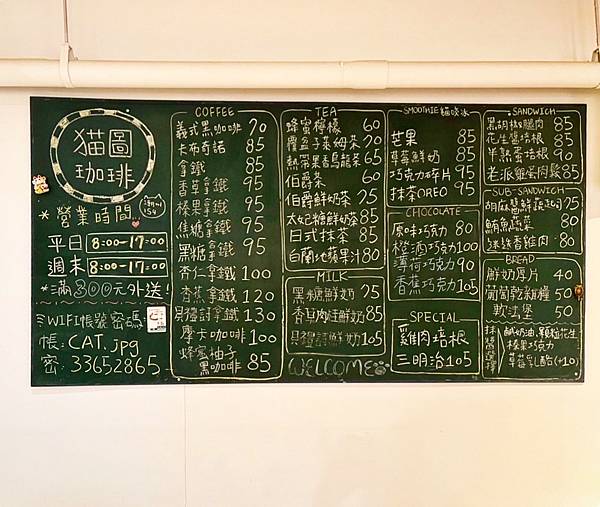 猫圖
珈琲
*營業時間
平日 8:00-17:00
週末 8:00-17:00
*滿300元外送!
WIFI帳號密碼:
帳:CAT.jpg
密:33652865
COFFEE
義式黑咖啡 70
卡布奇諾 85
拿鐵 85
香草拿鐵 95
榛果拿鐵 95
焦糖拿鐵 95
黑糖拿鐵 95
杏仁拿鐵 100
香蕉拿鐵 120
貝禮詩拿鐵 130
摩卡咖啡 100
蜂蜜柚子
黑咖啡 85
TEA
蜂蜜檸檬 60
覆盆子萊姆茶 70
熱帶果香烏龍茶 65
伯爵茶 60
伯爵鮮奶茶 75
太妃糖鮮奶茶 85
日式抹茶 85
白蘭地蘋果汁 80
MILK
黑糖鮮奶 75
香草 鮮奶 85
貝禮詩鮮奶 105
WELCOME
SMOOTHIE 貓啖冰
芒果 85
草莓鮮奶 85
巧克力碎片 95
抹茶OREO 95
CHOCOLATE
原味巧克力 80
橙酒巧克力 100
薄荷巧克力 90
香蕉巧克力 105
SPECIAL
雞肉培根
三明治 105
SANDWICH
黑胡椒腿肉 85
花生醬培根 85
半熟蛋培根 90
老派雞蛋肉鬆 85
SUB-SANDWICH
胡麻醬鮮蔬 70
鮪魚蔬菜 80
迷迭香雞肉 80
BREAD
鮮奶厚片 40
葡萄乾 50
軟法堡 50
抹醬選擇
鹹奶油、顆粒花生
榛果巧克力
草莓乳酪(+10)